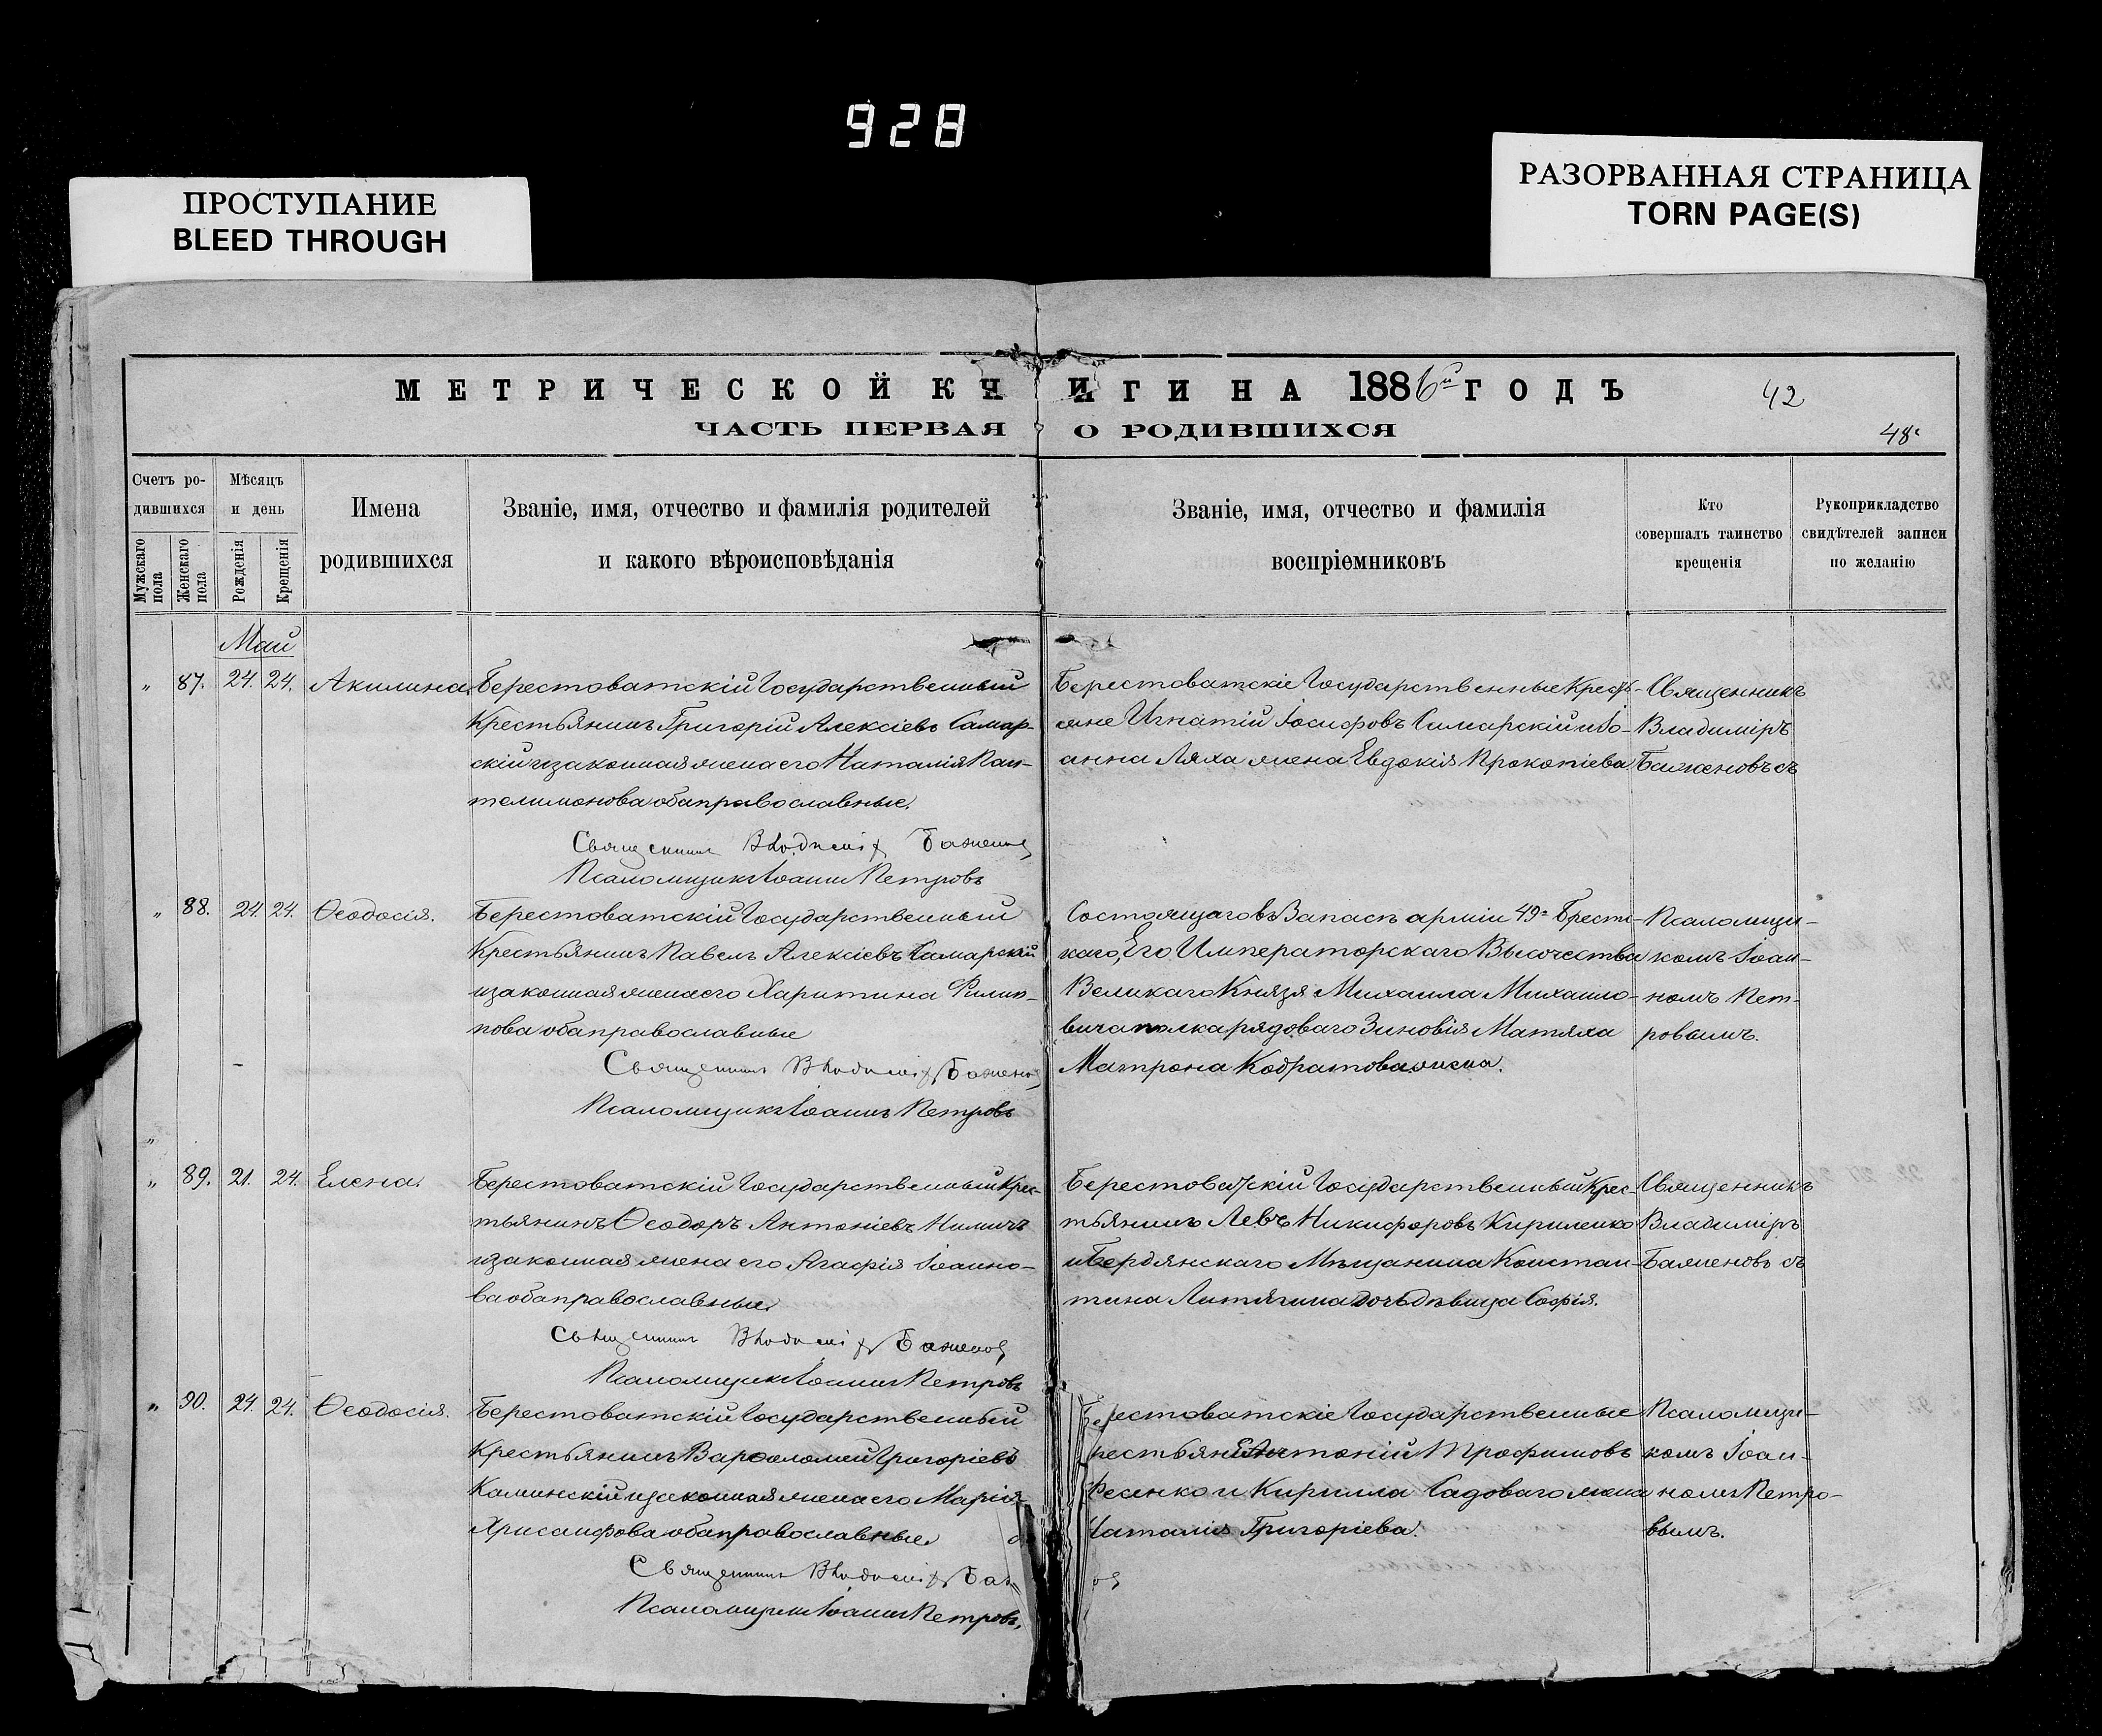 928
ПРОСТУПАНИЕ
BLEED THROUGH
РАЗОРВАННАЯ СТРАНИЦА
TORN PAGE(S)
МЕТРИЧЕСКОЙ КНИГИ НА 1886й ГОДЪ
42
ЧАСТЬ ПЕРВАЯ О РОДИВШИХСЯ
48
Счетъ ро-
дившихся
Мужскаго пола
Женскаго пола
Мѣсяцъ
и день
Рожденія
Крещенія
Имена
родившихся
Званіе, имя, отчество и фамилія родителей
и какого вѣроисповѣданія
Званіе, имя, отчество и фамилія
воспріемниковъ
Кто
совершалъ таинство
крещенія
Рукоприкладство
свидѣтелей записи
по желанію
Май
„ 87. 24. 24. Акилина.
Берестоватскій Государственный
Крестьянинъ Григорій Алексіевъ Самар-
скій и законная жена его Наталія Пан-
телимонова оба православные.
Священникъ Владиміръ Баженовъ
Псаломщикъ Іоаннъ Петровъ
Берестоватскіе Государственные Кресть-
яне Игнатій Іосифовъ Самарскій и Іо-
анна Ляха жена Евдокія Прокопіева.
Священникъ
Владиміръ
Баженовъ съ
„ 88. 24. 24. Ѳеодосія.
Берестоватскій Государственный
Крестьянинъ Павелъ Алексіевъ Самарскій
и законная жена его Харитина Филип-
пова оба православные
Священникъ Владиміръ Баженовъ
Псаломщикъ Іоаннъ Петровъ
Состоящаго въ Запасѣ арміи 49го Брест-
скаго, Его Императорскаго Высочества
Великаго Князя Михаила Михаило-
вича полка рядоваго Зиновія Матяха
Матрона Кодратова жена.
Псаломщи-
комъ Іоан-
номъ Пет-
ровымъ.
„
„ 89. 21. 24. Елена.
Берестоватскій Государственный Крес-
тьянинъ Ѳеодоръ Антоніевъ
и законная жена его Агафія Іоанно-
ва оба православные.
Священникъ Владиміръ Баженовъ
Псаломщикъ Іоаннъ Петровъ
Берестоватскій Государственный Крес-
тьянинъ Левъ Никифоровъ Кириленко
и Бердянскаго Мѣщанина Констан-
тина Литягина дочь дѣвица Софія.
Священникъ
Владиміръ
Баженовъ съ
„ 90. 24. 24. Ѳеодосія.
Берестоватскій Государственный
Крестьянинъ Варѳоломей Григоріевъ
Каминскій и законная жена его Марія
Хрисанфова оба православные.
Священникъ Владиміръ Баженовъ
Псаломщикъ Іоаннъ Петровъ.
Берестоватскіе Государственные
рестьяне Антоній Трофимовъ
Фесенко и Кирилла Садоваго жена
Наталія Григоріева.
Псаломщи-
комъ Іоан-
номъ Петро-
вымъ.